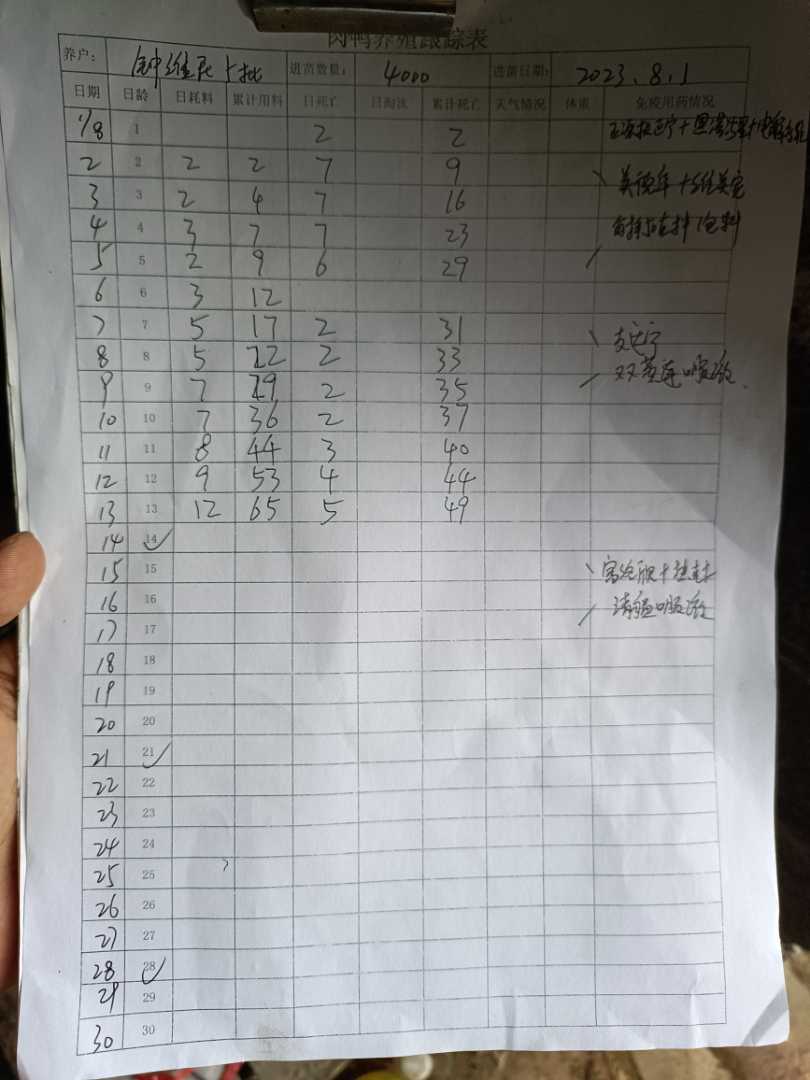 肉鸭养殖跟踪表
养户: 进苗数量: 4000 进苗日期: 2023.8.1
日期 日龄 日耗料 累计用料 日死亡 日淘汰 累计死亡 天气情况 体重 免疫用药情况
1/8 1 2 2
2 2 2 2 7 9
3 3 2 4 7 16
4 4 3 7 7 23
5 5 2 9 6 29
6 6 3 12
7 7 5 17 2 31
8 8 5 22 2 33 双黄连口服液
9 9 7 29 2 35
10 10 7 36 2 37
11 11 8 44 3 40
12 12 9 53 4 44
13 13 12 65 5 49
14 14 ✓
15 15
16 16 口服液
17 17
18 18
19 19
20 20
21 21 ✓
22 22
23 23
24 24
25 25
26 26
27 27
28 28 ✓
29 29
30 30